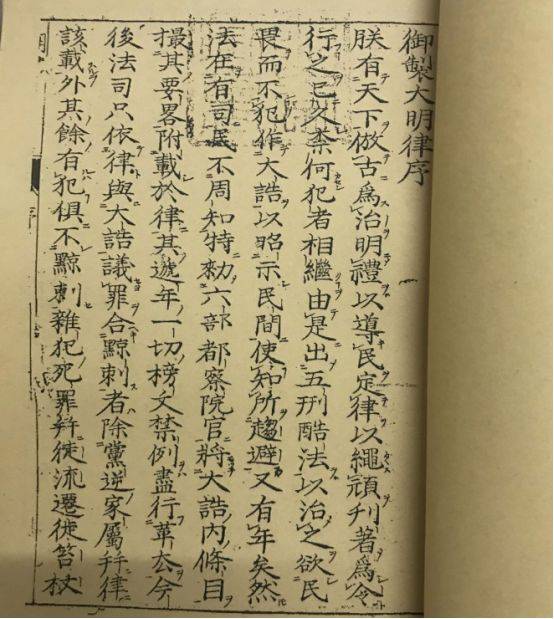 御製大明律序
朕有天下倣古爲治明禮以導民定律以繩頑刋著爲令
行之已久柰何犯者相繼由是出五刑酷法以治之欲民
畏而不犯作大誥以昭示民間使知所趨避又有年矣然
法在有司民不周知特勑六部都察院官將大誥內條目
撮其要畧附載於律其遞年一切榜文禁例盡行革去今
後法司只依律與大誥議罪合黥刺者除黨逆家屬幷律
該載外其餘有犯俱不黥刺雜犯死罪幷徒流遷徙笞杖
序